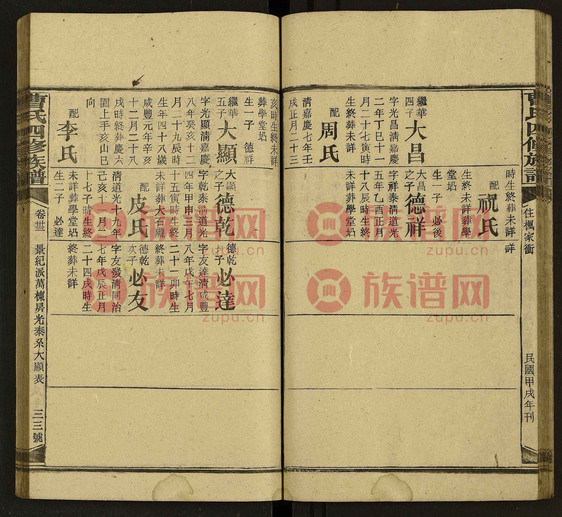 曹氏四修族譜
住楓家衝
民國甲戌年刊
時生終葬未詳
祝氏
配
生終未詳葬學
堂塢
生一子 必後
繼華
四子
大昌
字光昌清嘉慶
二年丁巳十一
月二十七寅時
八終未詳葬
配
周氏
清嘉慶七年壬
戌正月二十三
大昌
之子
德祥
字祥泰清道光
五年乙酉正月
十八辰時生終
葬未詳
亥時生終未詳
葬學堂塢
生一子 德祥
繼華
五子
大顯
字光顯清嘉慶
八年癸亥十二
月二十九辰時
生年四十八歲
咸豐元年辛亥
十二月二十八
戌時終葬大石
園上手亥山巳
向
配
李氏
大顯
之子
德乾
字乾泰清道光
四年甲申三月
十五寅時生終
未詳葬大石
配
皮氏
清道光十九年
己亥六月二十
七子時生終
未詳葬學堂塢
生二子 必達
德乾
之子
必達
字友達清咸豐
八年戊午七月
二十一卯時生
終葬未詳
德乾
次子
必友
字友發清同治
七年戊辰正月
二十四戌時生
終葬未詳
曹氏四修族譜
卷卅
景紀派萬棟房光泰系大顯表
三三號
族谱网
zupu.cn